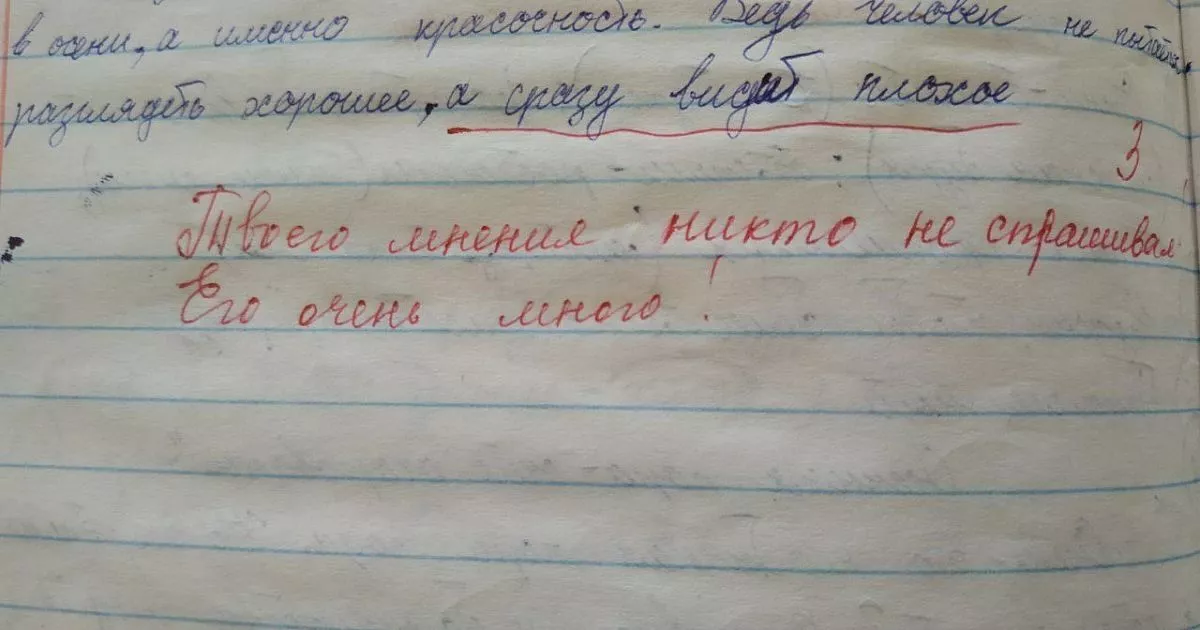 в осени, а именно красочность. Ведь человек не пытается
разглядеть хорошее, а сразу видит плохое
3
Твоего мнения никто не спрашивал
Его очень много!